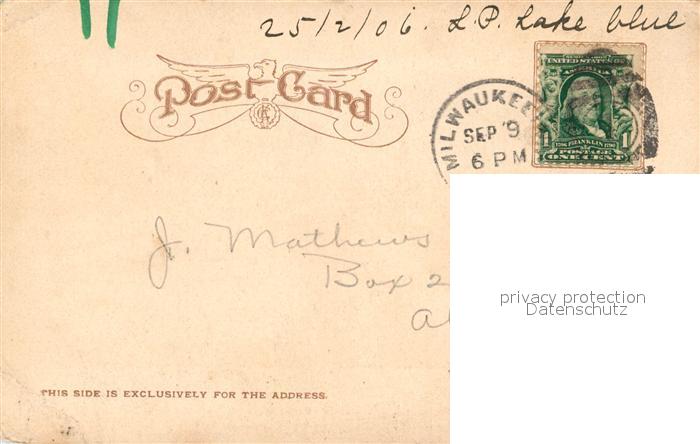 25/2/06. L.P. Lake blue
Post Card
MILWAUKEE
SEP 9
6 PM
UNITED STATES OF
AMERICA
1 1706 FRANKLIN 1790 1
POSTAGE
ONE CENT
J. Mathews
Box 2
privacy protection
Datenschutz
THIS SIDE IS EXCLUSIVELY FOR THE ADDRESS.